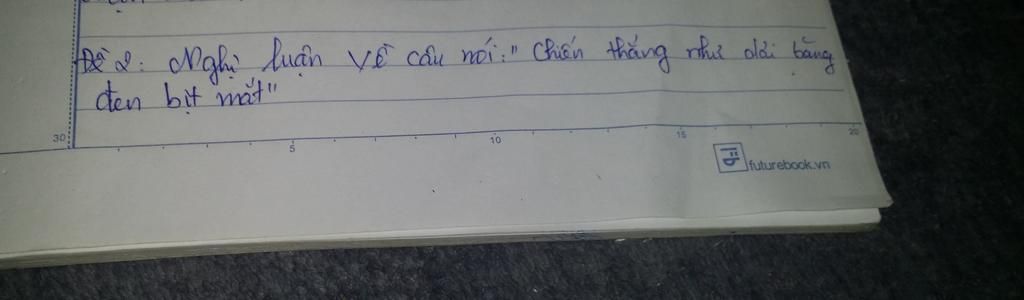 Đề 2: Nghị luận về câu nói: "Chiến thắng như dải băng
đen bịt mắt"
30 5 10 15 20
futurebook.vn